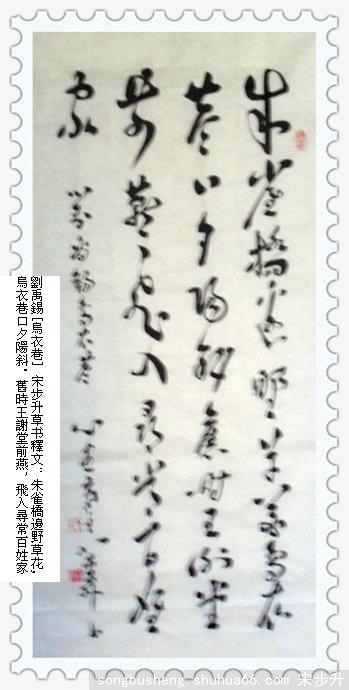 朱雀橋边野草花烏衣
巷口夕陽斜舊時王謝堂
前燕飛入尋常百姓
家
劉禹錫[烏衣巷] 宋步升草书釋文: 朱雀橋邊野草花,
烏衣巷口夕陽斜。舊時王謝堂前燕,飛入尋常百姓家
songbusheng.shuhua66.com 宋步升